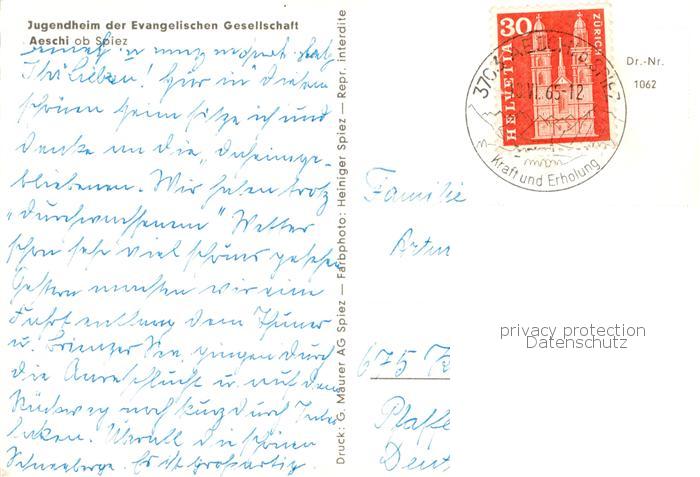 Jugendheim der Evangelischen Gesellschaft
Aeschi ob Spiez
Ihr Lieben! Hier in diesem
schönen Heim sitze ich und
denke an die „Daheimge-
bliebenen. Wir haben trotz
„durchwachsenem" Wetter
schon sehr viel schönes gesehen
Gestern machten wir eine
Fahrt entlang dem Thuner
u. Brienzer See, gingen durch
die Aareschlucht u. auf dem
Rückweg noch kurz durch Inter
laken. Überall die schönen
Schneeberge. Es ist großartig.
Druck: G. Maurer AG Spiez — Farbphoto: Heiniger Spiez — Repr. interdite
30
HELVETIA
ZÜRICH
VI. 65-12
Kraft und Erholung
Dr.-Nr.
1062
Familie
Artur
675 K
Pfaffe
Deut
privacy protection
Datenschutz